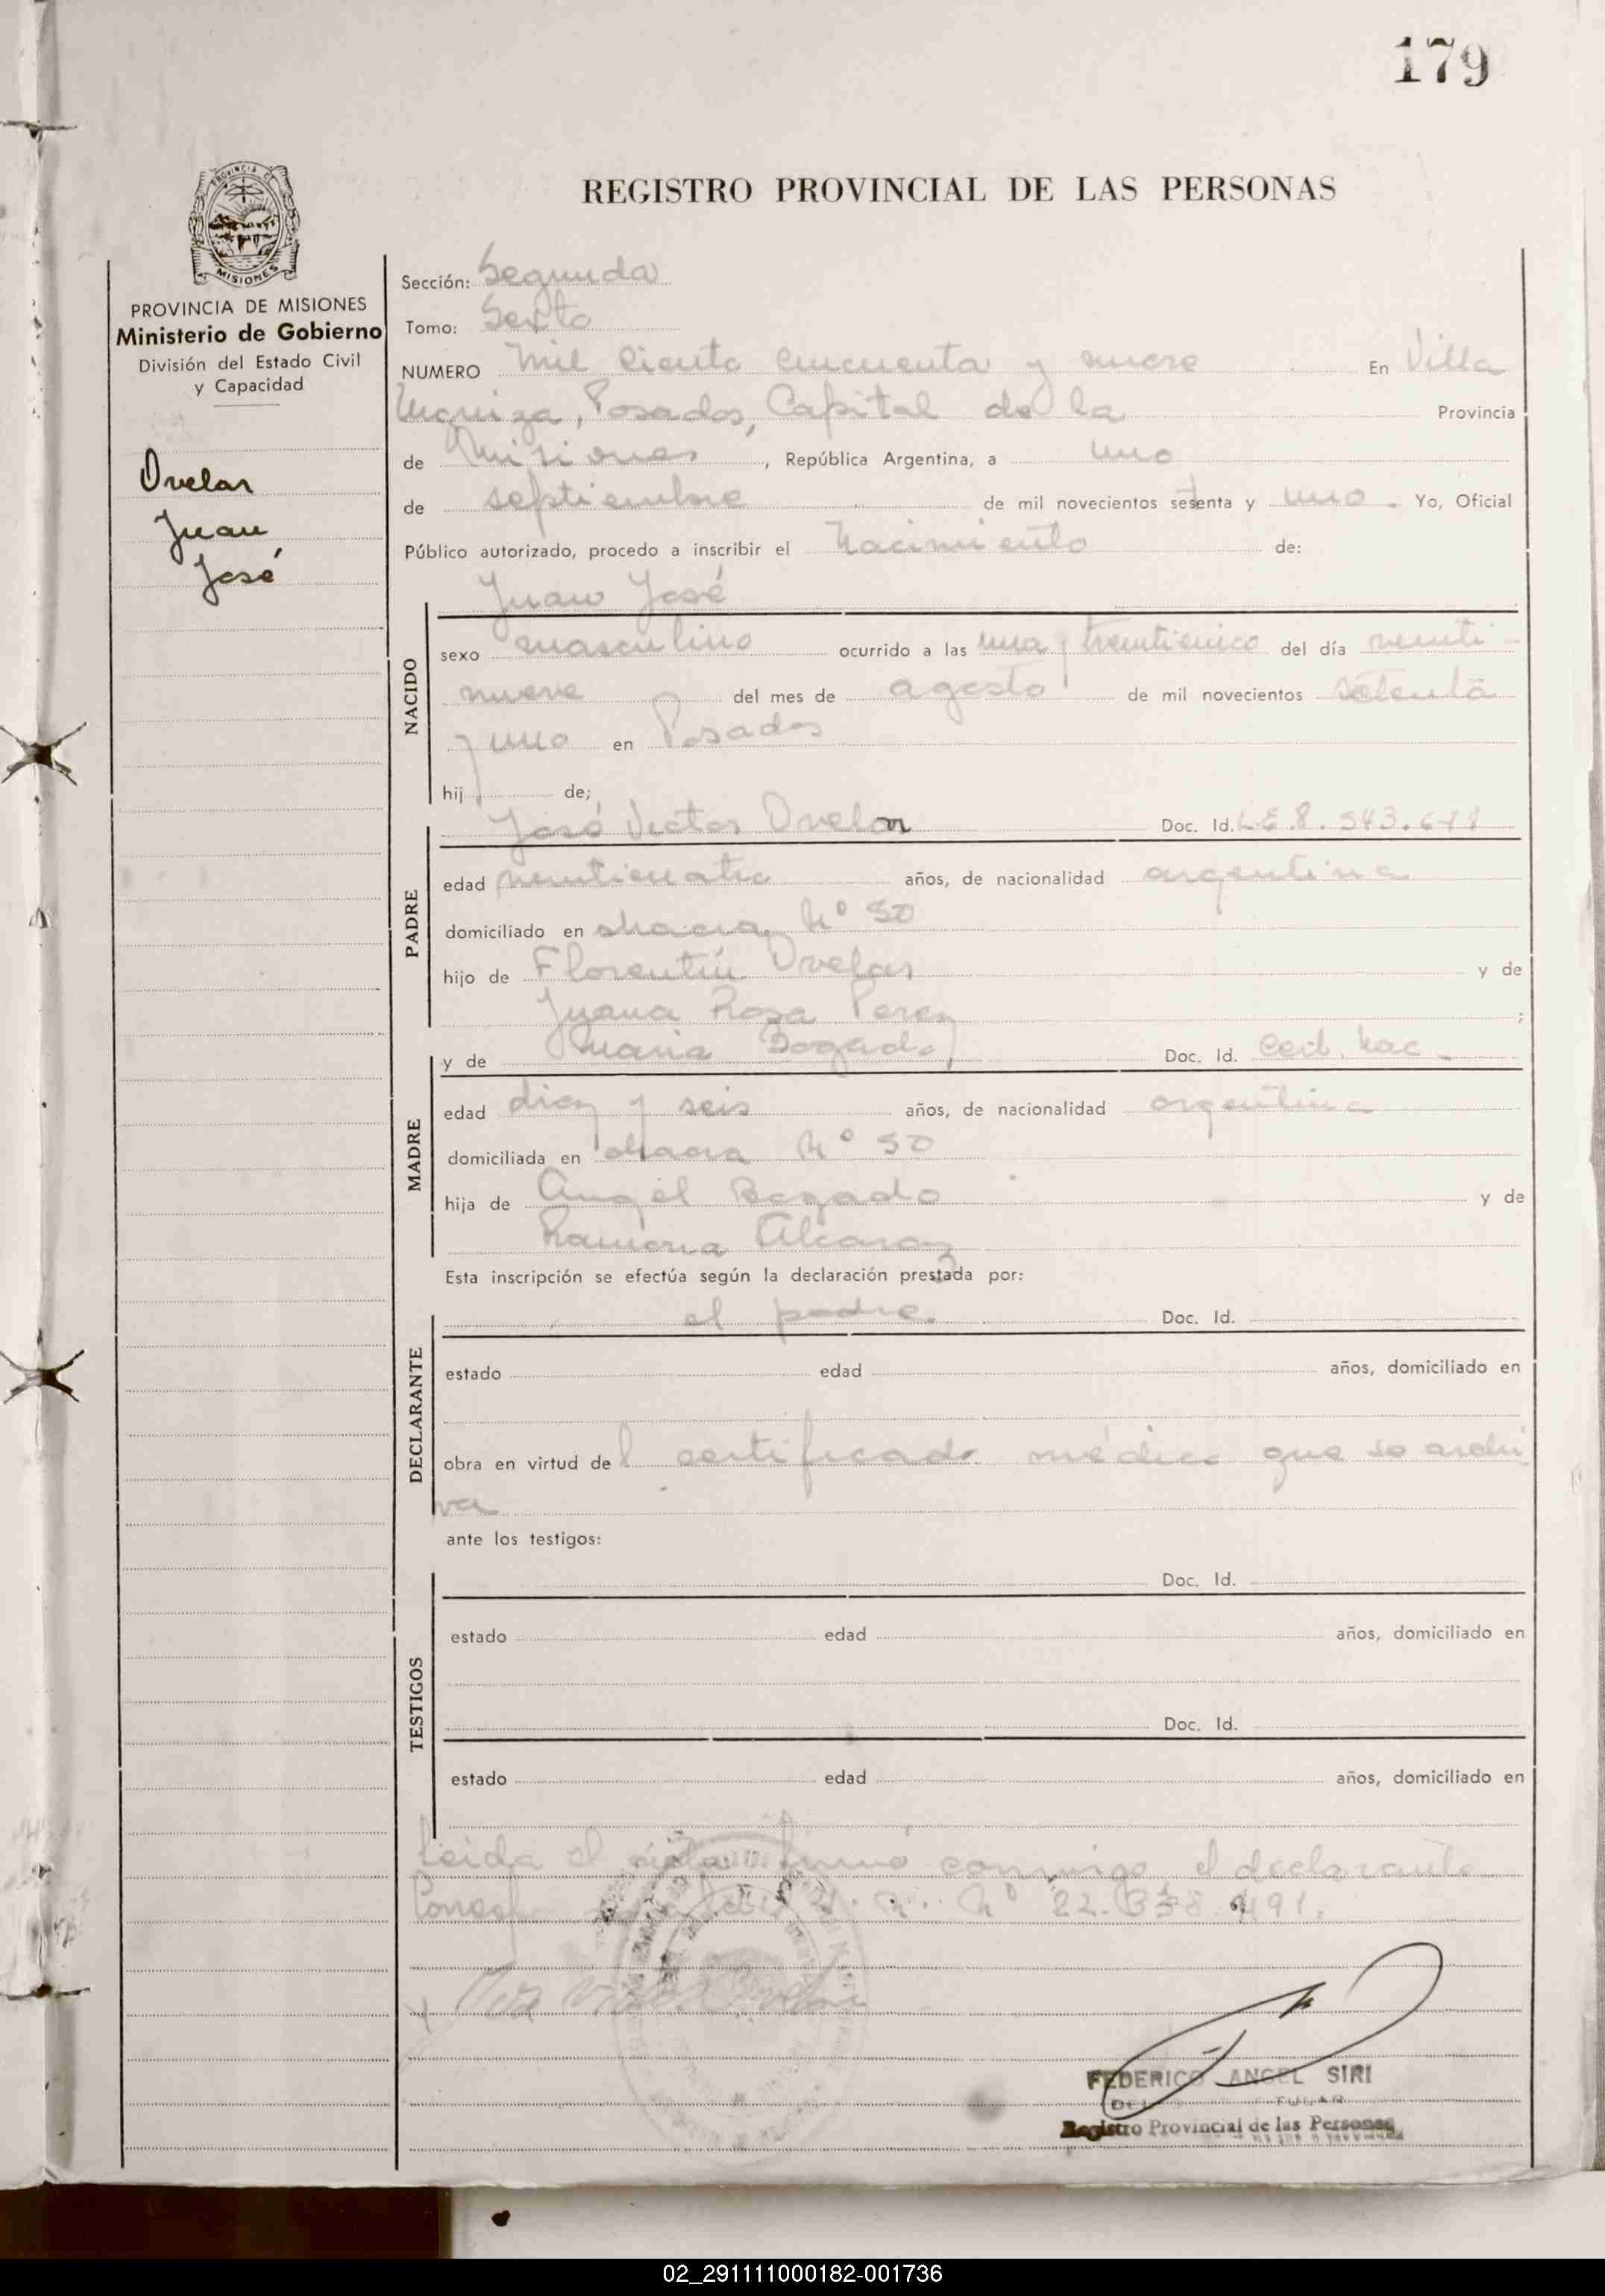 179
REGISTRO PROVINCIAL DE LAS PERSONAS
PROVINCIA DE MISIONES
Ministerio de Gobierno
División del Estado Civil
y Capacidad
Ovelar
Juan
José
Sección: Segunda
Tomo: Sexto
NUMERO mil ciento cincuenta y nueve En Villa
Urquiza, Posadas, Capital de la Provincia
de Misiones, República Argentina, a uno
de septiembre de mil novecientos setenta y uno. Yo, Oficial
Público autorizado, procedo a inscribir el nacimiento de:
Juan José
NACIDO
sexo masculino ocurrido a las una y treinticinco del día veinti-
nueve del mes de agosto de mil novecientos setenta
y uno en Posadas
hij de;
José Victor Ovelar Doc. Id. L.E. 8.543.671
PADRE
edad veinticuatro años, de nacionalidad argentina
domiciliado en chacra Nº 50
hijo de Florentín Ovelar y de
Juana Rosa Perez ;
y de Maria Bogado Doc. Id. Cert. Nac.
MADRE
edad diez y seis años, de nacionalidad argentina
domiciliada en chacra Nº 50
hija de Angel Bogado y de
Ramona Alcaraz
Esta inscripción se efectúa según la declaración prestada por:
el padre. Doc. Id.
DECLARANTE
estado edad años, domiciliado en
obra en virtud del certificado médico que se archi
va
ante los testigos:
Doc. Id.
TESTIGOS
estado edad años, domiciliado en
Doc. Id.
estado edad años, domiciliado en
Leida el acta firmó conmigo el declarante
Nº 22. 491.
FEDERICO ANGEL SIRI
Registro Provincial de las Personas
02_291111000182-001736